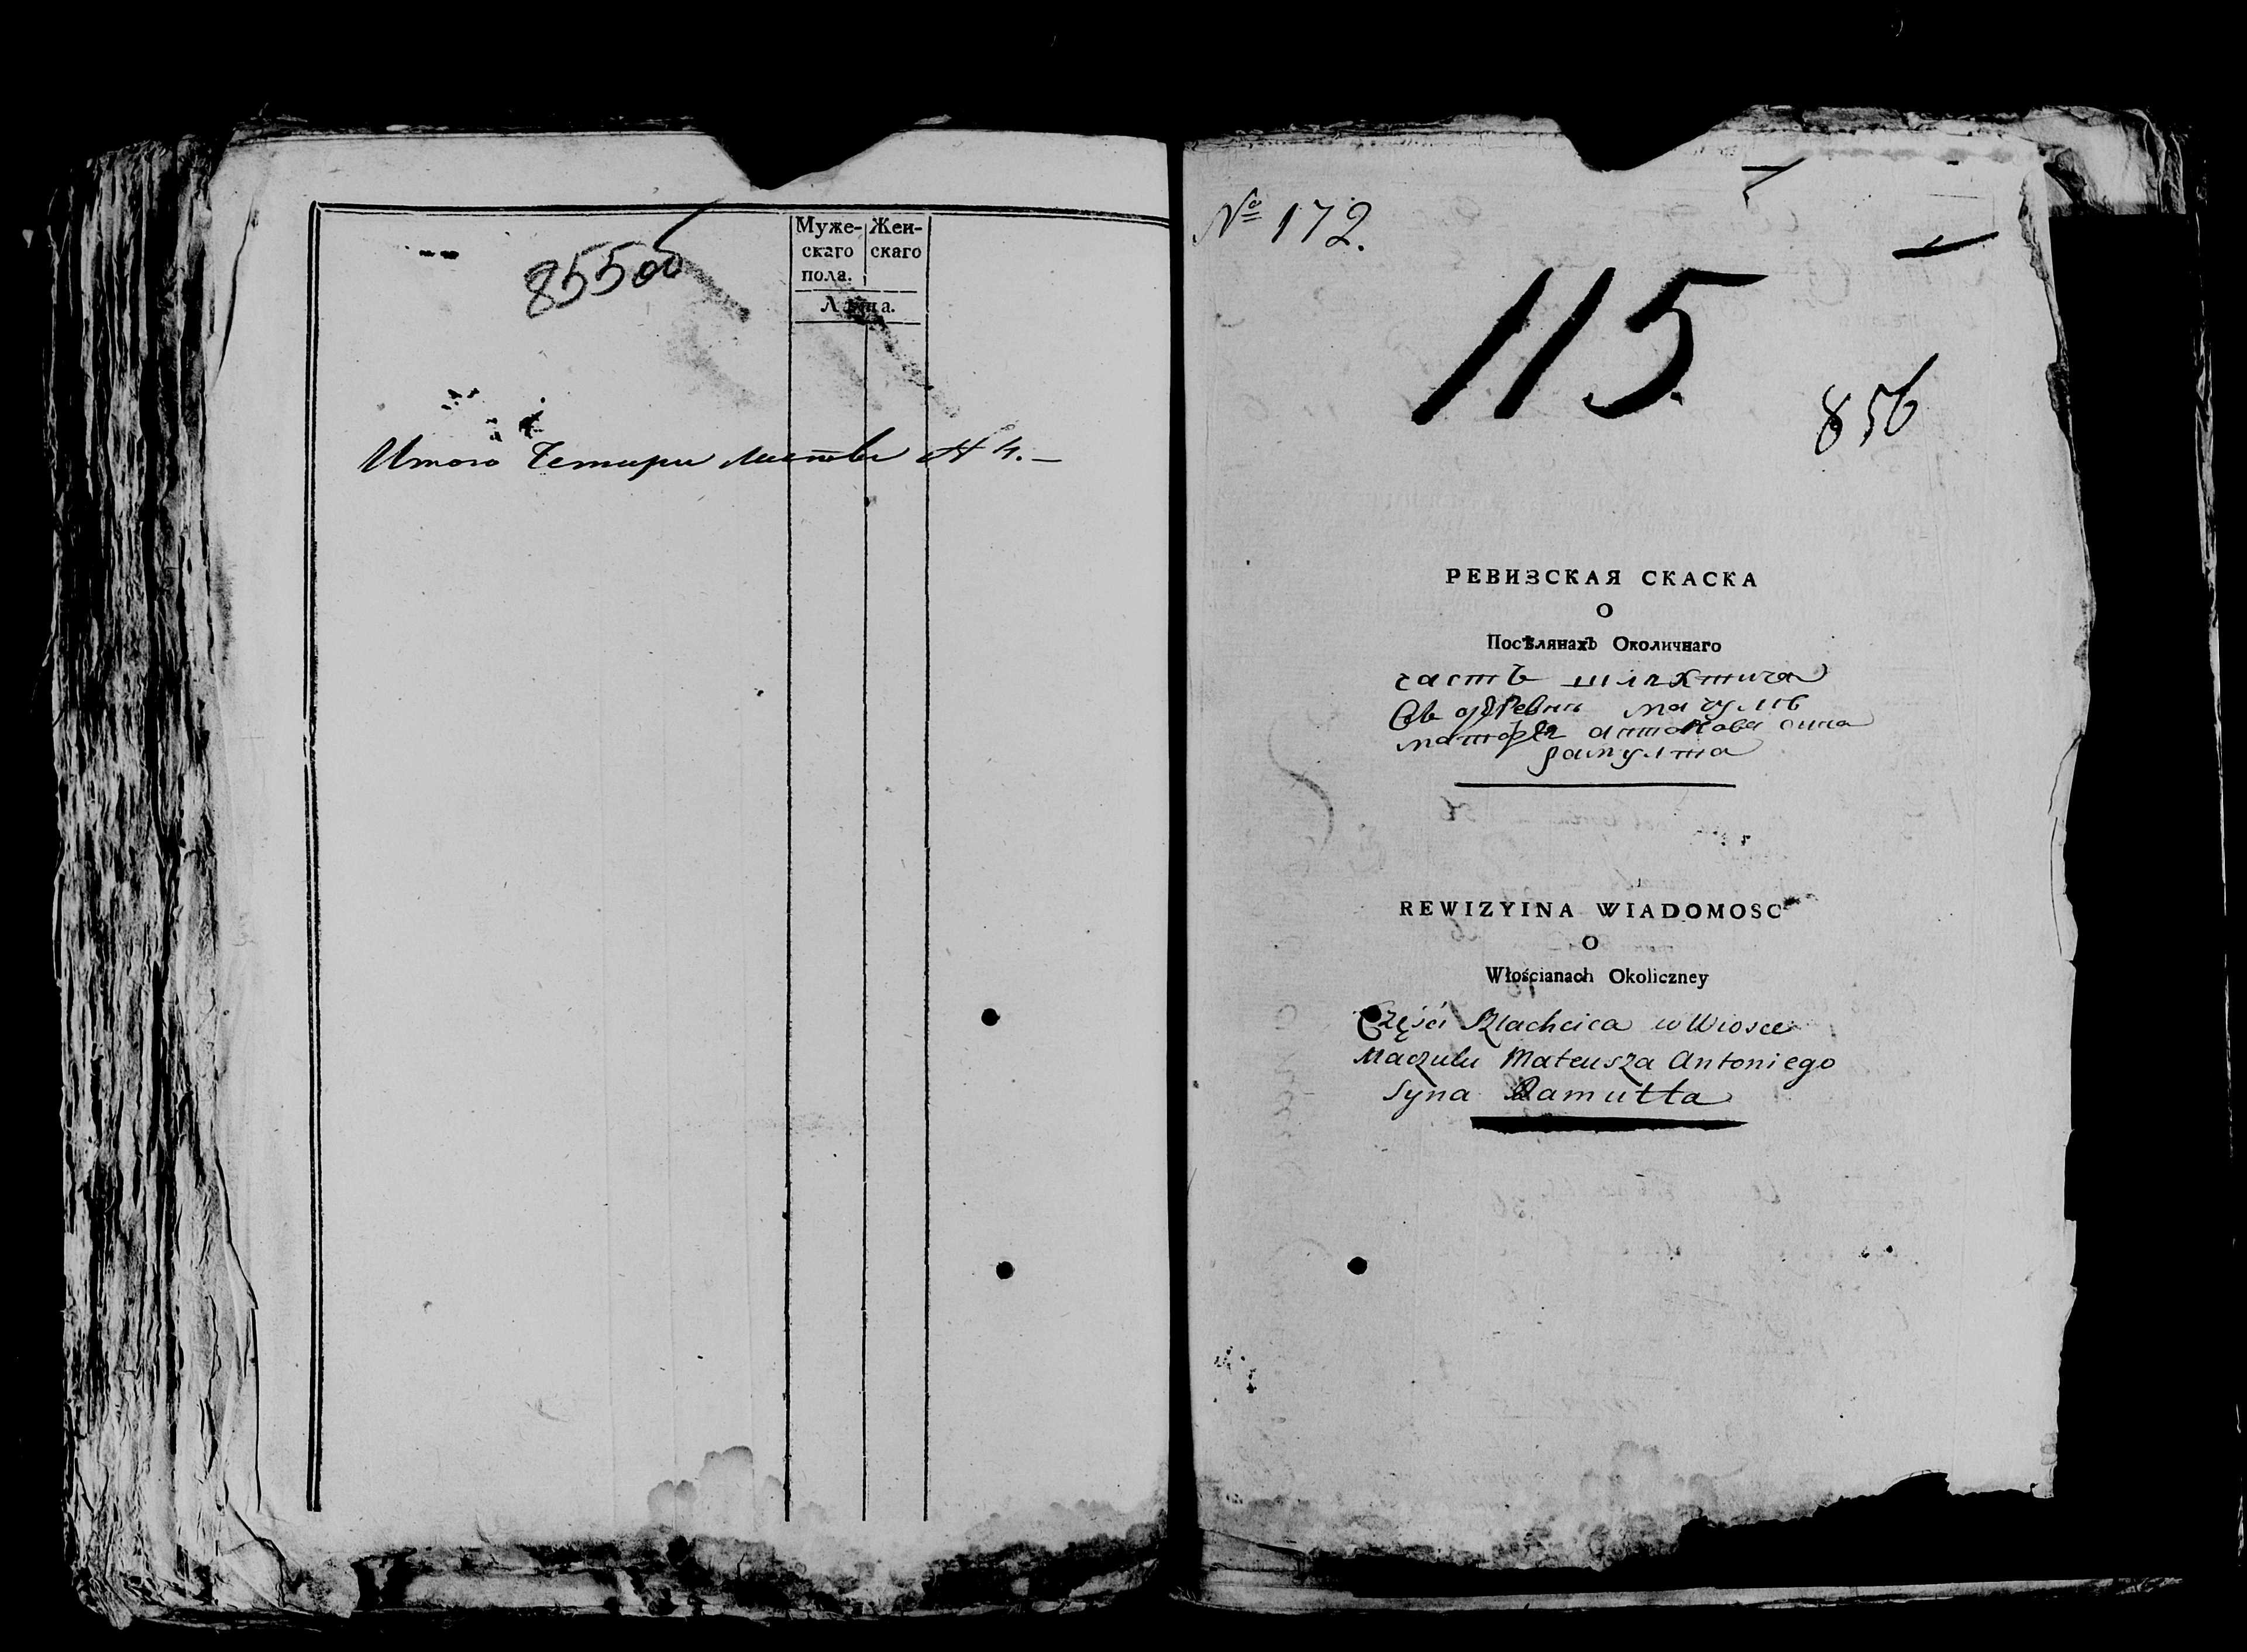 855об
Муже- Жен-
скаго скаго
пола.
Лица.
Итого Четыри листы N 4.
№ 172.
115.
856
РЕВИЗСКАЯ СКАСКА
О
Посѣлянахъ Околичнаго
часть шляхтича
маческая антонова сина
рамулта
REWIZYINA WIADOMOSC
O
Włościanach Okoliczney
Części Szlachcica w Wiosce
Maczulu Mateusza Antoniego
Syna Ramułta